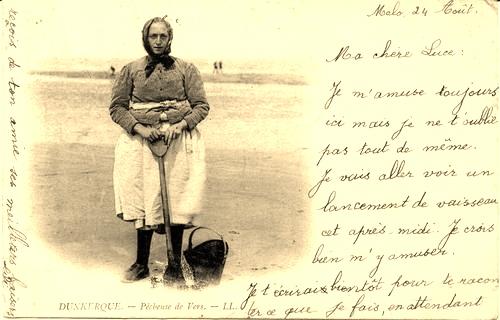 Malo, 24 Août.
Ma chère Luce:
Je m'amuse toujours
ici mais je ne t'oublie
pas tout de même.
Je vais aller voir un
lancement de vaisseau
cet après-midi. Je crois
bien m'y amuser.
Je t'écrirais bientôt pour te racon
ter ce que je fais, en attendant
reçois de ton amie ses meilleurs baisers
DUNKERQUE. — Pêcheuse de Vers. — LL.